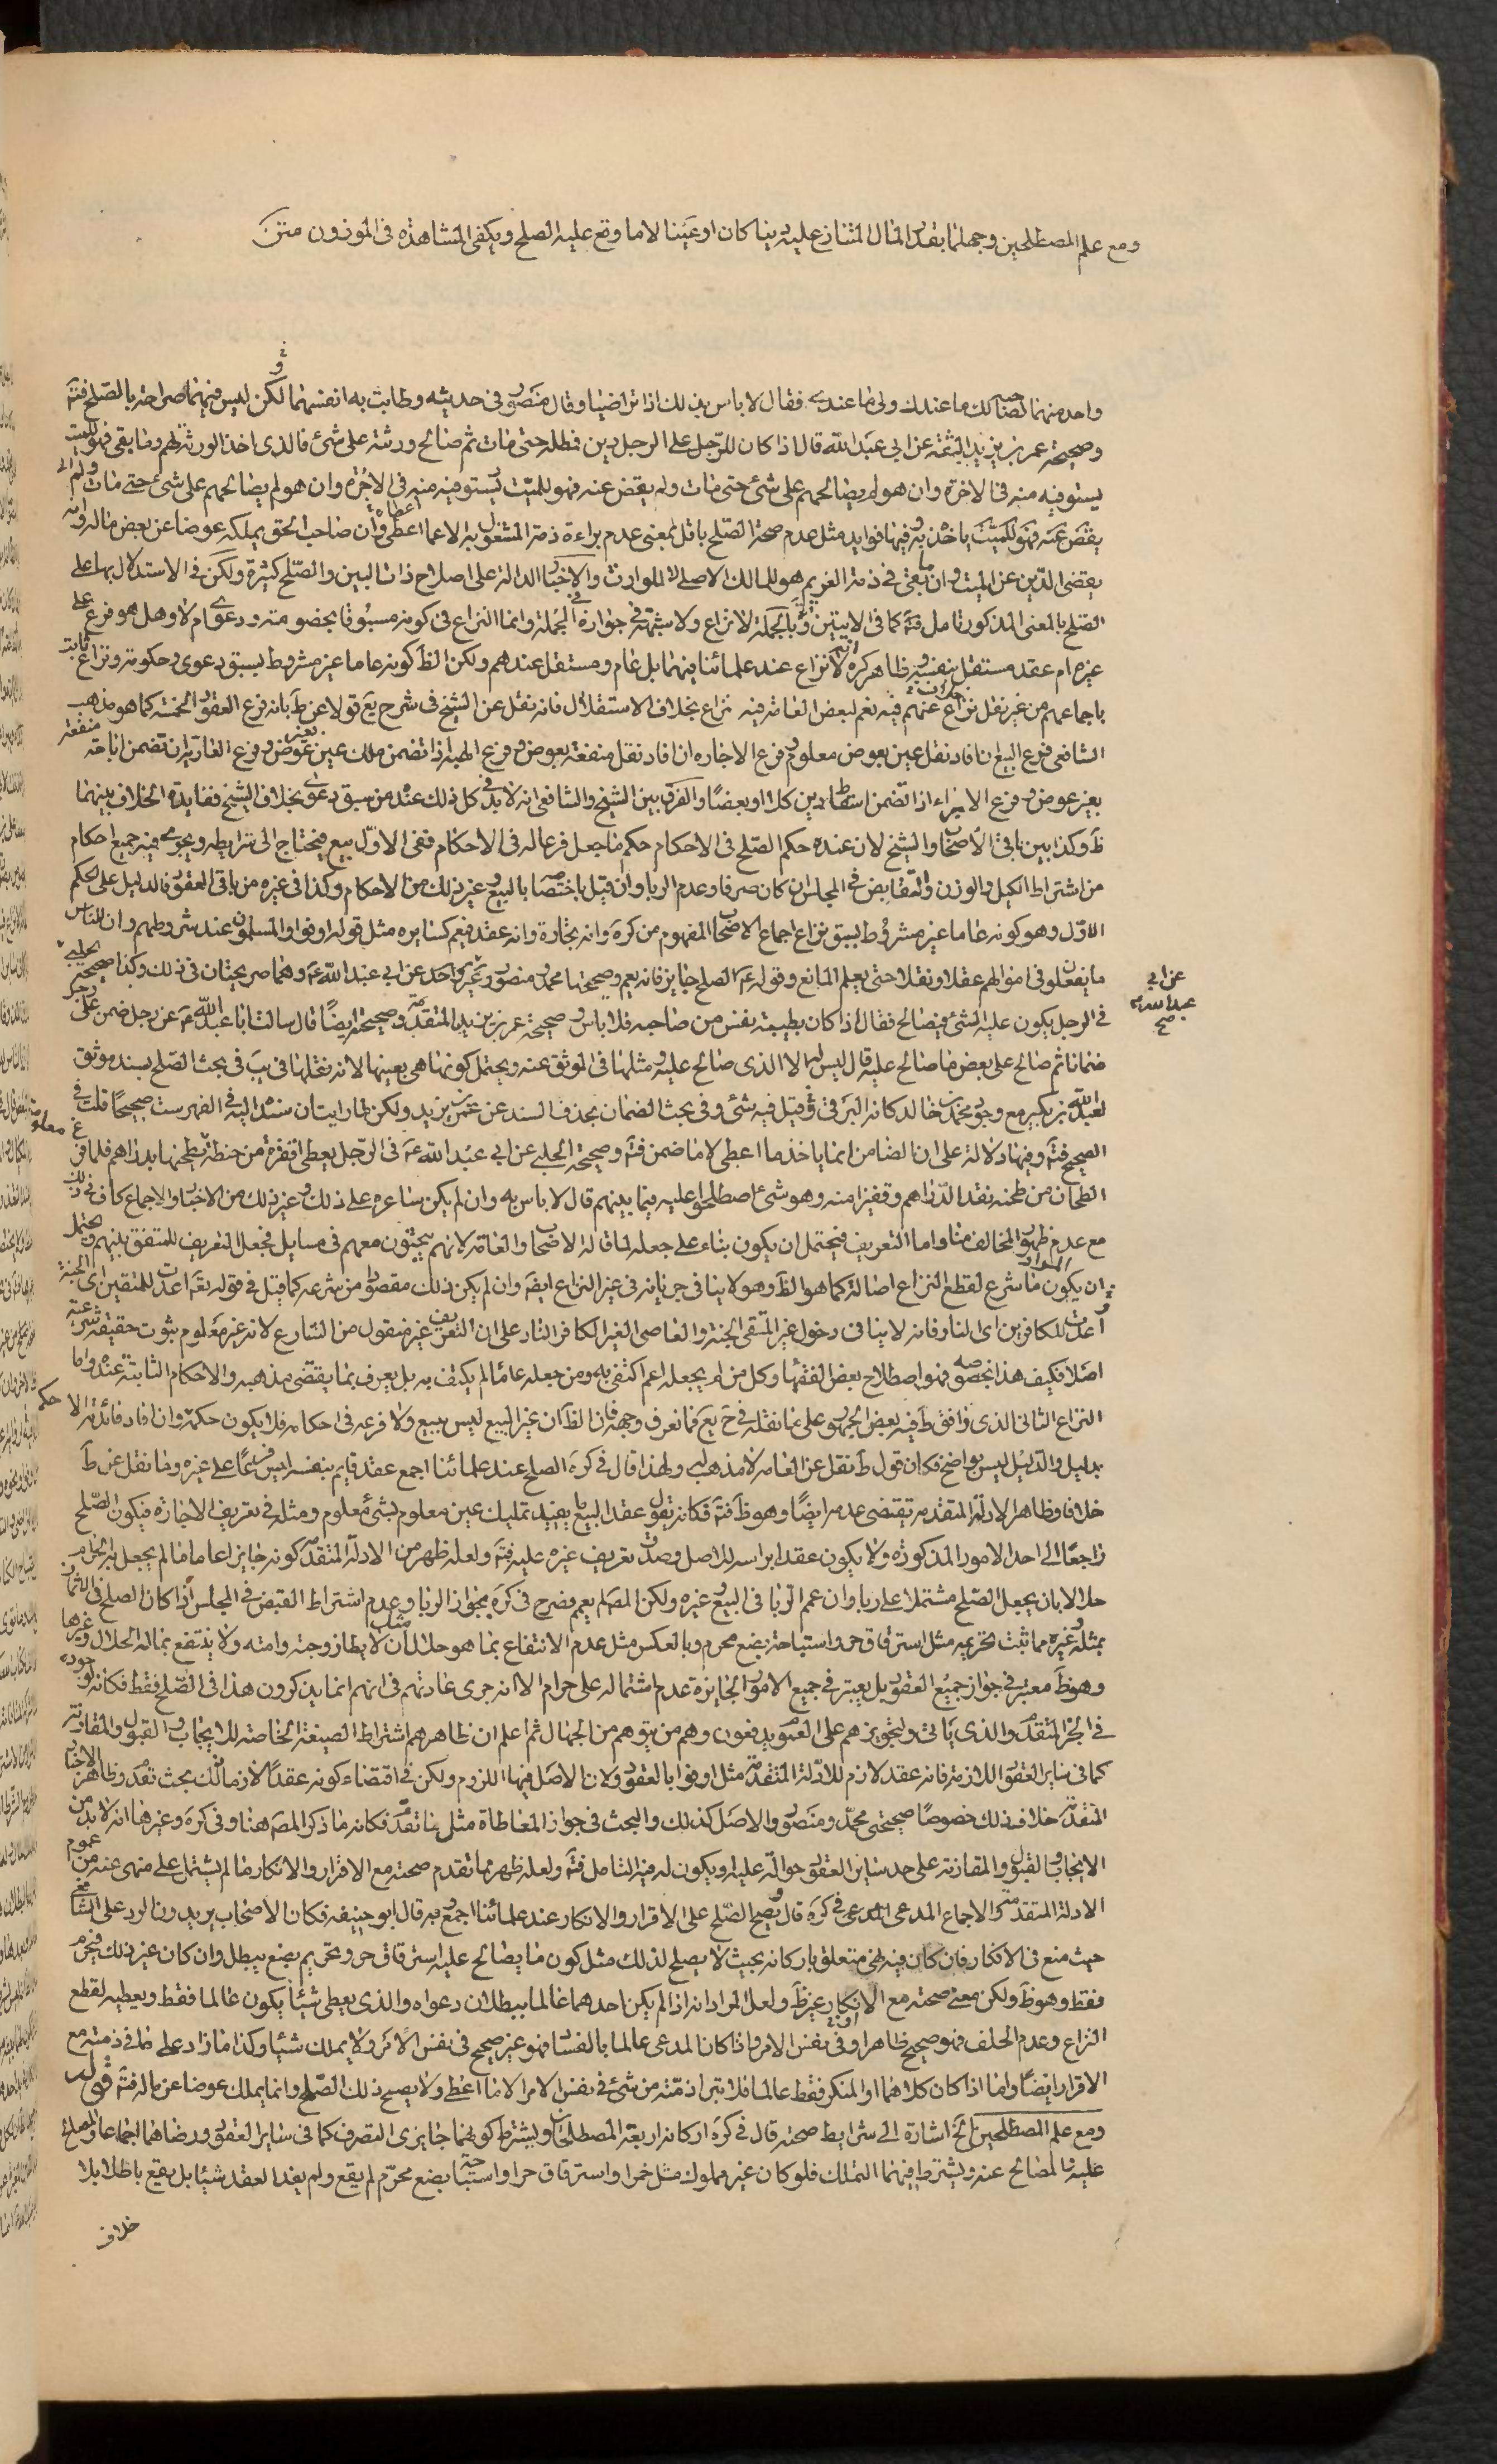 ومع علم المصطلحين وجهلهما بقدر المال المتنازع عليه دينا كان او عينا لا ما وقع عليه الصلح ويكفى المشاهده فى الموزون متن
واحد منهما لصاحبه لك ما عندك ولى ما عندى فقال لا باس بذلك اذا تراضيا وقال منصور فى حديثه وطابت به انفسهما لكن ليس فيهما صراحة بالصلح فتَه
وصحيحة عمر بن يزيد الثقة عن ابى عبد الله قال اذا كان للرّجل على الرجل دين فمطله حتى مات ثم صالح ورثته على شئ فالذى اخذ الورثة لهم وما بقى فهو للميت
يستوفيه منه فى الاخرة وان هو لم يصالحهم على شئ حتى مات ولم يقض عنه فهو للميّت يستوفيه منه فى الاخرة وان هو لم يصالحهم على شئ حتى مات ولم
يقض عنه فهو للميت ياخذ به وفيها فوايد مثل عدم صحة الصّلح باقل بمعنى عدم براءة ذمة المشغول به الا عما اعطى وان صاحب الحق يملكه عوضا عن بعض ماله وانه
يقضى الدّين عن الميت وان ما بقى فى ذمة الغريم هو للمالك الاصلى لا للوارث والاخبار الدالة على اصلاح ذات البين والصّلح كثيرة ولكن فى الاستدلال بها على
الصّلح بالمعنى المذكور تامل فتَه كما فى الايتين وبالجملة لا نزاع ولا شبهة فى جوازه فى الجملة وانما النزاع فى كونه مسبوقا بخصومة ودعوى ام لا وهل هو فرع على
غيره ام عقد مستقل بنفسه وظاهر كره انه لا نزاع عند علمائنا فيهما بل عام ومستقل عندهم ولكن الظ كونه عاما غير مشروط بسبق دعوى وحكومة ونزاع ثابت
باجماعهم من غير نقل نزاع عنهم فيه نعم لبعض العامة فيه نزاع بخلاف الاستقلال فانه نقل عن الشيخ فى شرح يع قولا عن ط بانه فرع العقود الخمسة كما هو مذهب
الشافعى فرع البيع ان افاد نقل عين بعوض معلوم وفرع الاجاره ان افاد نقل منفعة بعوض وفرع الهبة اذا تضمن ملك عين بغير عوض وفرع العارية ان تضمن اباحة منفعة
بغير عوض وفرع الابراء اذا تضمن اسقاط دين كلا او بعضا والفرق بين الشيخ والشافعى انه لا بد فى كل ذلك عنده من سبق دعوى بخلاف الشيخ ففايدة الخلاف بينهما
ظ وكذا بين باقى الاصحاب والشيخ لان عنده حكم الصّلح فى الاحكام حكم ما جعل فرعا له فى الاحكام ففى الاوّل بيع فيحتاج الى شرايطه ويجرى فيه جميع احكام
من اشتراط الكيل والوزن والتقابض فى المجلس ان كان صرفا وعدم الربا وان قيل باختصاصه بالبيع وغير ذلك من الاحكام وكذا فى غيره من باقى العقود فالدليل على الحكم
الاوّل وهو كونه عاما غير مشروط بسبق نزاع اجماع الاصحاب المفهوم من كره وانه تجارة وانه عقد فيعم كسايره مثل قوله اوفوا والمسلمون عند شروطهم وان الناس
ما يفعلون فى اموالهم عقلا ونقلا حتى يعلم المانع وقوله عم الصلح جايز فانه يعم وصحيحتا محمد ومنصور وغير واحد عن ابى عبد الله عم وهما صريحتان فى ذلك وكذا صحيحة الحلبى
عن ابى عبد الله عم صح
فى الرجل يكون عليه الشئ فيصالح فقال اذا كان بطيبة نفس من صاحبه فلا باس وصحيحة عمر بن يزيد المتقدمة وصحيحة ايضا قال سالت ابا عبد الله عم عن رجل ضمن على رجل
ضمانا ثم صالح على بعض ما صالح عليه قال ليس له الا الذى صالح عليه ومثلها فى الموثق عنه ويحتمل كونها هى بعينها لانه نقلها فى يب فى بحث الصّلح بسند موثق
لعبد الله بن بكير مع وجود محمد بن خالد كانه البرقى وقيل فيه شئ وفى بحث الضمان بحذف السند عن عمر بن يزيد ولكن لما رايت ان سنده اليه فى الفهرست صحيحا قلت فى
الصحيح فتَه وفيها دلالة على ان الضامن انما ياخذ ما اعطى لا ما ضمن فتَه وصحيحة الحلبى عن ابى عبد الله عم فى الرّجل يعطى اقفزة من حنطة معلومة يطحنها بدراهم فلما فرغ
الطحان من طحنه نقد الدّراهم وقفيزا منه وهو شئ اصطلحوا عليه فيما بينهم قال لا باس به وان لم يكن ساعره على ذلك وغير ذلك من الاخبار والاجماع كاف فى ذلك
مع عدم ظهور المخالف منا واما التعريف فيحتمل ان يكون بناء على جعله لما قاله الاصحاب والعامة لانهم يبحثون معهم فى مسايل فجعل التعريف للمتفق بينهم ويحتمل
ان يكون المراد ما شرع لقطع النزاع اصالة كما هو الظ وهو لا ينافى جريانه فى غير النزاع ايضه وان لم يكن ذلك مقصودا من شرعه كما قيل فى قوله تعه اعدت للمتقين اى الجنة
و اعدت للكافرين اى النار فانه لا ينافى دخول غير المتقى الجنة والعاصى الغير الكافر النار على ان التعريف غير منقول من الشارع لانه غير معلوم ثبوت حقيقة شرعية
اصلا فكيف هذا بخصوصه فهو اصطلاح بعض الفقهاء وكل من لم يجعله اعم اكتفى به ومن جعله عاما لم يكتف به بل يعرف بما يقتضى مذهبه والاحكام الثابتة عنده واما
النزاع الثانى الذى وافق ط فيه بعض الجمهور على ما نقله فى ح يع فما نعرف وجهه فان الظ ان غير البيع ليس ببيع ولا فرعه فى احكامه فلا يكون حكمه وان افاد فائدته الا
بدليل والدّليل ليس بواضح فكان قول ط نقل عن العامة لا مذهب له ولهذا قال فى كره الصلح عند علمائنا اجمع عقد قايم بنفسه ليس فرعا على غيره وما نقل عن ط
خلافا وظاهر الادلة المتقدمة تقتضى عدمه ايضا وهو ظ فتَه فكانه يقول عقد البيع ما يفيد تمليك عين معلوم بشئ معلوم ومثله فى تعريف الاجارة فيكون الصّلح
راجعا الى احد الامور المذكوره ولا يكون عقدا براسه للاصل وصدق تعريف غيره عليه فتَه ولعله ظهر من الادلة المتقدمة كونه جايزا عاما ما لم يجعل به الحرام
حلالا بان يجعل الصّلح مشتملا على ربا وان عمم الربا فى البيع وغيره ولكن المصه لم يعمم فصرح فى كره بجواز الربا وعدم اشتراط القبض فى المجلس اذا كان الصلح فى الاثمان
بمثله وغيره مما ثبت تحريمه مثل استرقاق حر واستباحة بضع محرم وبالعكس مثل عدم الانتفاع بما هو حلال مثل ان لا يطا زوجته وامته ولا ينتفع بماله الحلال وغيرها
وهو ظ معتبر فى جواز جميع العقود بل يعتبر فى جميع الامور الجايزة عدم اشتماله على حرام الا انه جرى عادتهم فى انهم انما يذكرون هذا فى الصّلح فقط فكانه لوجوده
فى الخبر المتقدم والذى ياتى ولتجويزهم على العموم يدفعون وهم من يتوهم من الجهال ثم اعلم ان ظاهرهم اشتراط الصيغة الخاصة للايجاب والقبول والمقارنة
كما فى ساير العقود اللازمة فانه عقد لازم للادلة المتقدمة مثل اوفوا بالعقود ولان الاصل فيها اللزوم ولكن فى اقتضاء كونه عقدا لازما ذلك بحث تقدم وظاهر الاخبار
المتقدمة خلاف ذلك خصوصا صحيحتى محمد ومنصور والاصل كذلك والبحث فى جواز المعاطاة مثل ما تقدم فكانه ما ذكر المصه هنا وفى كره وغيرها انه لا بد من
الايجاب والقبول والمقارنة على حد ساير العقود حوالة عليه او يكون له فيه التامل فتَه ولعله ظهر مما تقدم صحته مع الاقرار والانكار ما لم يشتمل على منهى عنه من عموم
الادلة المتقدمة والاجماع المدعى المدعى فى كره قال ويصح الصّلح على الاقرار والانكار عند علمائنا اجمع وبه قال ابو حنيفه فكان الاصحاب يريدون الرد على الشافعى
حيث منع فى الانكار فان كان فيه نهى متعلق باركانه بحيث لا يصلح لذلك مثل كون ما يصالح عليه استرقاق حر وتحريم بضع يبطل وان كان غير ذلك فيحرم
فقط وهو ظ ولكن معنى صحته مع الانكار غير ظ ولعل المراد انه اذا لم يكن احدهما عالما ببطلان دعواه والذى يعطى شيئا يكون عالما فقط ويعطيه لقطع
النزاع وعدم الحلف فهو صحيح ظاهرا وفى نفس الامر واذا كان المدعى عالما بالفساد فهو غير صحيح فى نفس الامر ولا يملك شيئا وكذا ما زاد على ما فى ذمته مع
الاقرار ايضا واما اذا كان كلاهما او المنكر فقط عالما فلا تبرا ذمّته من شئ فى نفس الامر الا ما اعطى ولا يصح ذلك الصّلح وانما يملك عوضا عن ماله فتَه قوله
ومع علم المصطلحين الخ اشارة الى شرايط صحته قال فى كره اركانه اربعة المصطلحان ويشترط كونهما جايزى التصرف كما فى ساير العقود ورضاهما اجماعا والمصالح
عليه والمصالح عنه ويشترط فيهما التملك فلو كان غير مملوك مثل خمر او استرقاق حر او استباحة بضع محرّم لم يقع ولم يفد العقد شيئا بل يقع باطلا بلا
خلاف